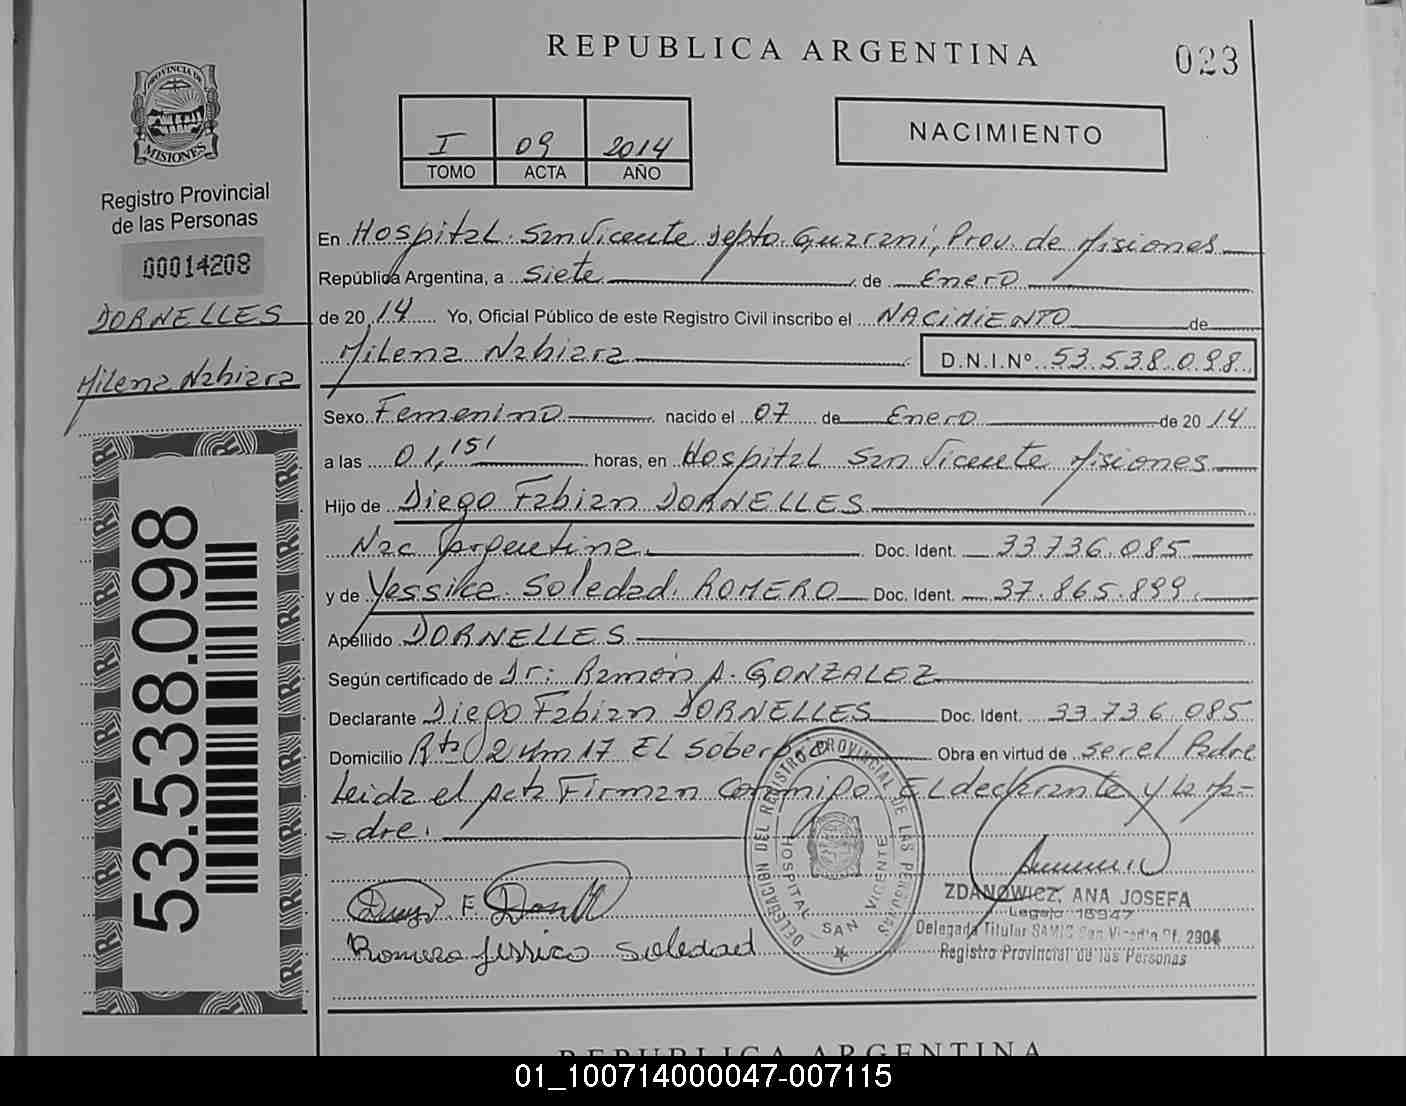 REPUBLICA ARGENTINA
023
PROVINCIA DE
MISIONES
Registro Provincial
de las Personas
00014208
DORNELLES
Milena Nahiara
53.538.098
I 09 2014
TOMO ACTA AÑO
NACIMIENTO
En Hospital San Vicente Depto Guarani, Prov. de Misiones
República Argentina, a Siete de Enero
de 2014 Yo, Oficial Público de este Registro Civil inscribo el NACIMIENTO de
Milena Nahiara D.N.I.Nº 53.538.098
Sexo Femenino nacido el 07 de Enero de 2014
a las 01,15' horas, en Hospital San Vicente Misiones
Hijo de Diego Fabian DORNELLES
Nac Argentina Doc. Ident. 33.736.085
y de Yessika Soledad ROMERO Doc. Ident. 37.865.899
Apellido DORNELLES
Según certificado de Dr: Ramón A. GONZALEZ
Declarante Diego Fabian DORNELLES Doc. Ident. 33.736.085
Domicilio Rta 02 Km 17 EL Soberbio Obra en virtud de ser el Padre
Leida el acta Firman Conmigo El declarante y La Ma=
=dre.
DELEGACIÓN DEL REGISTRO PROVINCIAL DE LAS PERSONAS
HOSPITAL SAN VICENTE
Romero Jessica Soledad
ZDANOWICZ, ANA JOSEFA
Legajo 16947
Delegada Titular SAMIC San Vicente Of. 2904
Registro Provincial de las Personas
REPUBLICA ARGENTINA
01_100714000047-007115